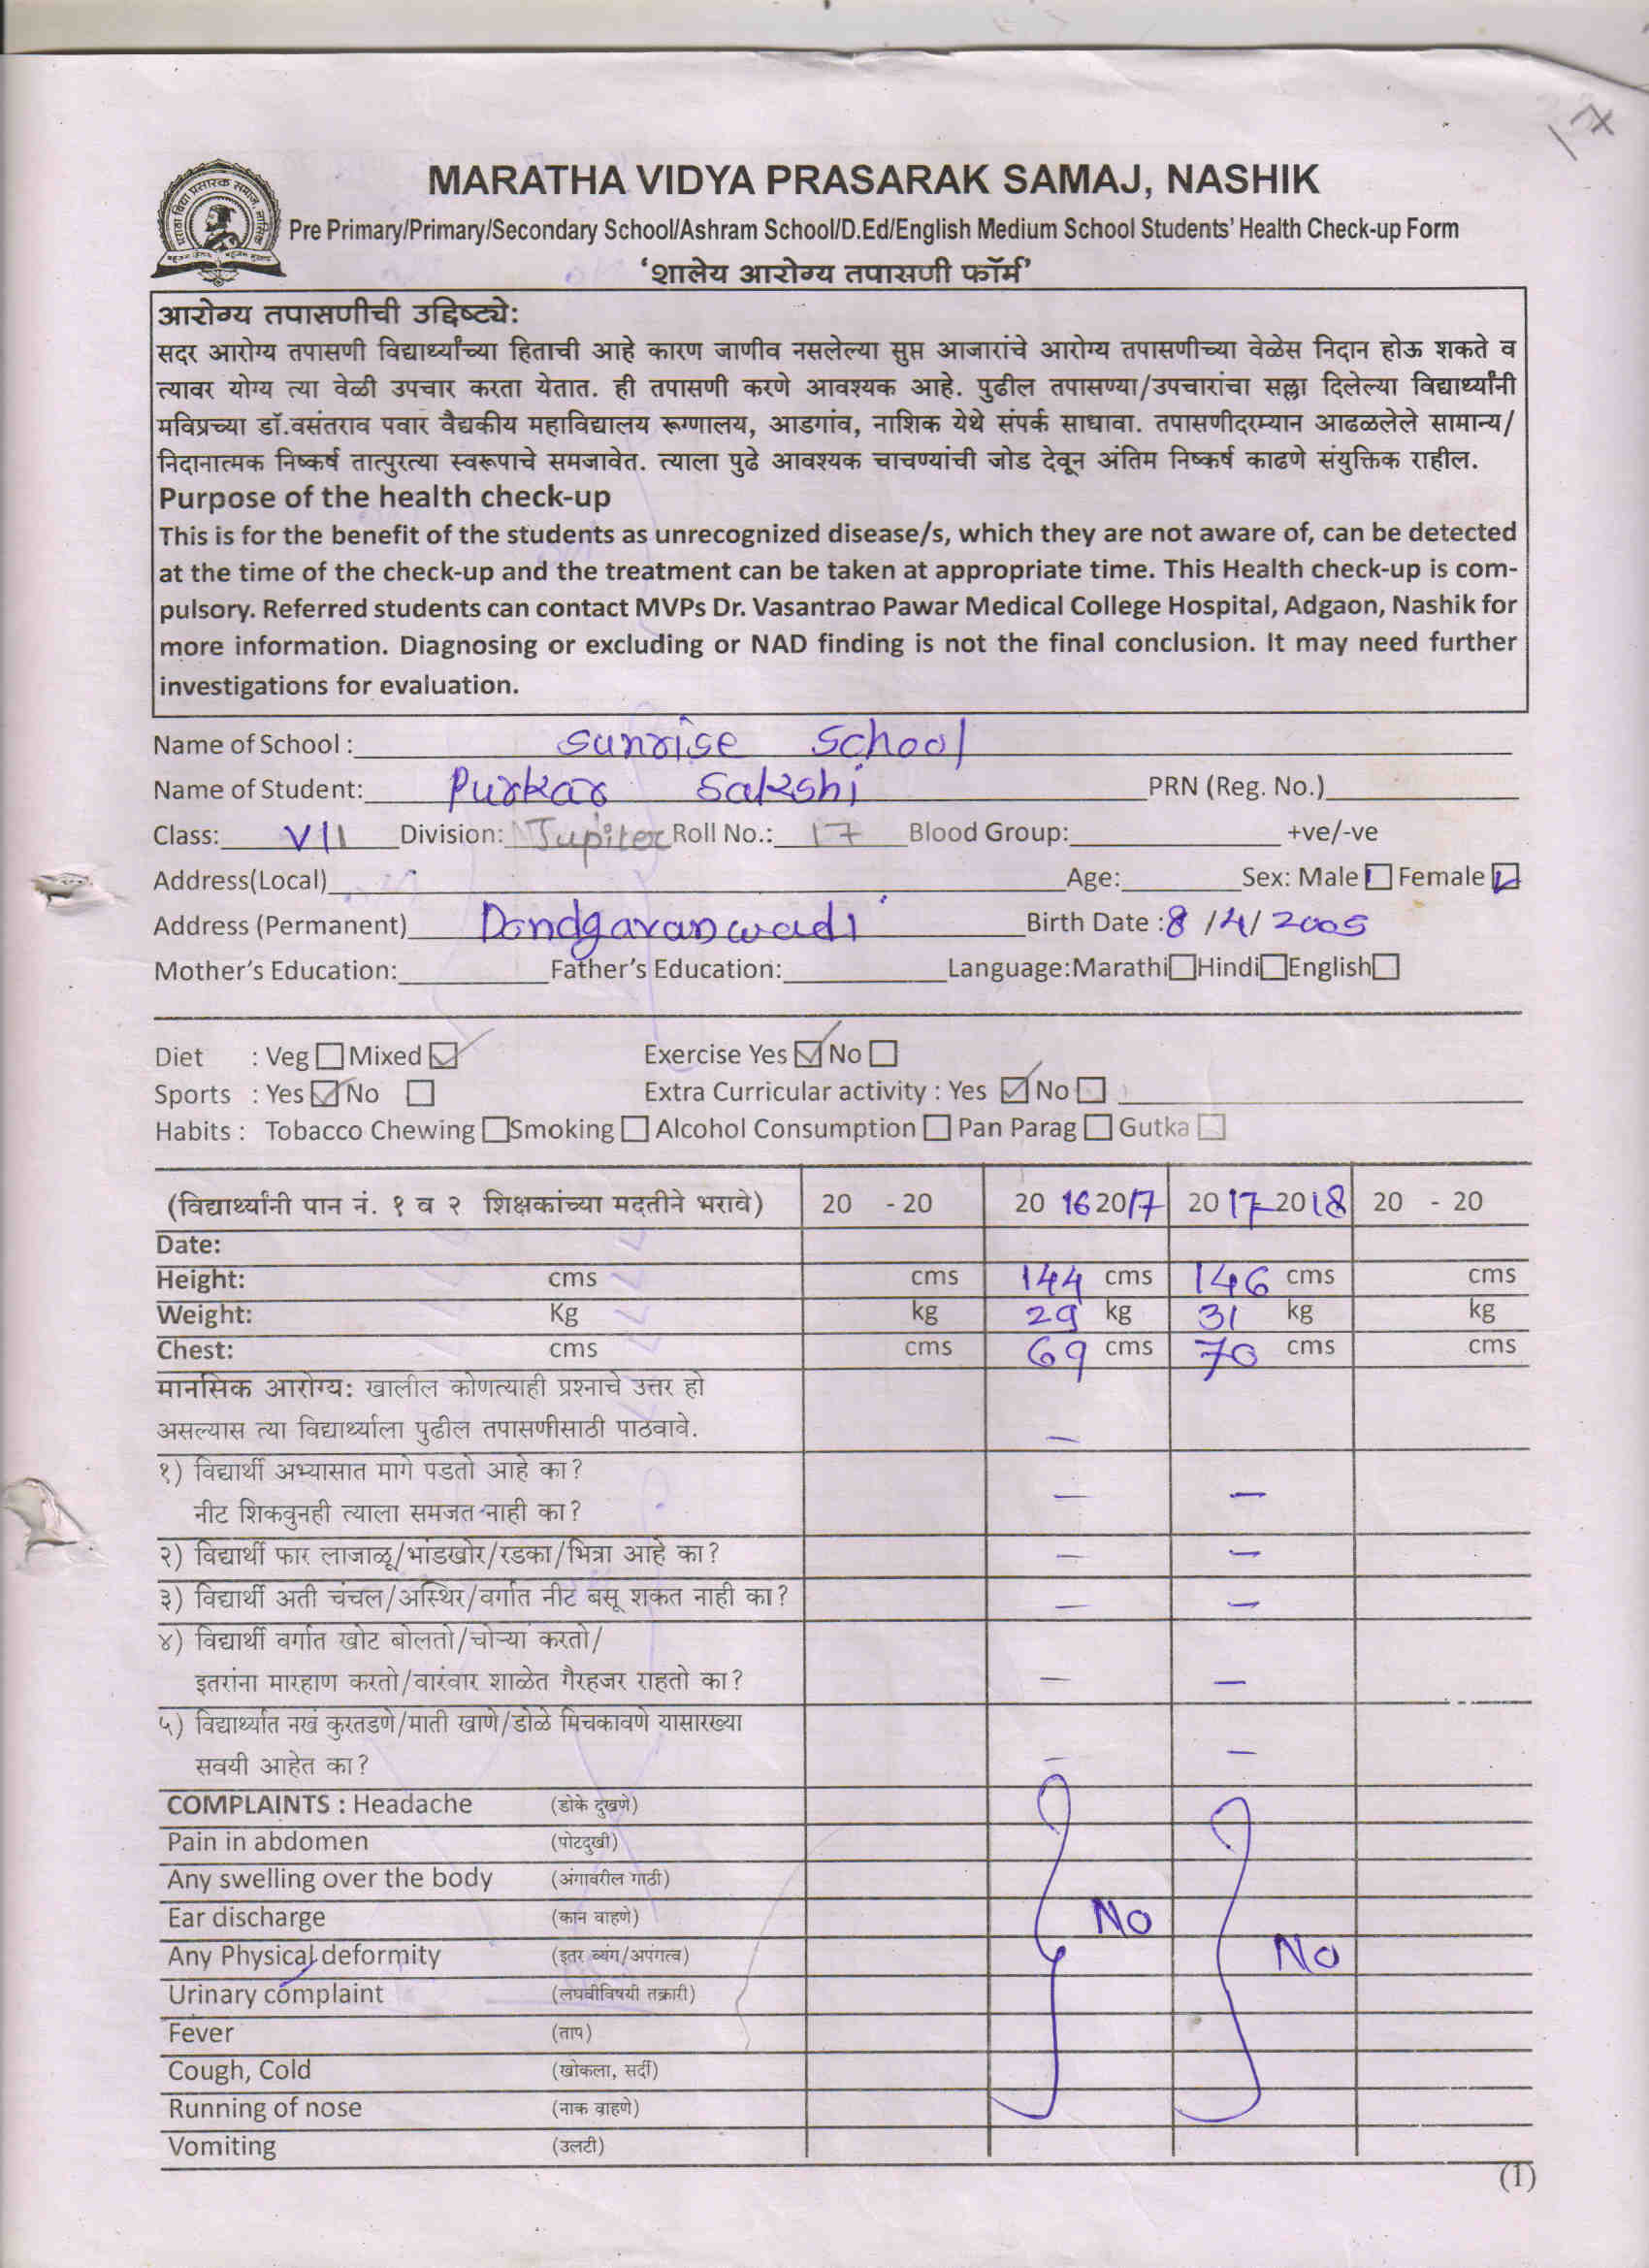 17
MARATHA VIDYA PRASARAK SAMAJ, NASHIK
Pre Primary/Primary/Secondary School/Ashram School/D.Ed/English Medium School Students' Health Check-up Form
'शालेय आरोग्य तपासणी फॉर्म'
आरोग्य तपासणीची उद्दिष्ट्ये:
सदर आरोग्य तपासणी विद्यार्थ्यांच्या हिताची आहे कारण जाणीव नसलेल्या सुप्त आजारांचे आरोग्य तपासणीच्या वेळेस निदान होऊ शकते व
त्यावर योग्य त्या वेळी उपचार करता येतात. ही तपासणी करणे आवश्यक आहे. पुढील तपासण्या/उपचारांचा सल्ला दिलेल्या विद्यार्थ्यांनी
मविप्रच्या डॉ.वसंतराव पवार वैद्यकीय महाविद्यालय रूग्णालय, आडगांव, नाशिक येथे संपर्क साधावा. तपासणीदरम्यान आढळलेले सामान्य/
निदानात्मक निष्कर्ष तात्पुरत्या स्वरूपाचे समजावेत. त्याला पुढे आवश्यक चाचण्यांची जोड देवून अंतिम निष्कर्ष काढणे संयुक्तिक राहील.
Purpose of the health check-up
This is for the benefit of the students as unrecognized disease/s, which they are not aware of, can be detected
at the time of the check-up and the treatment can be taken at appropriate time. This Health check-up is com-
pulsory. Referred students can contact MVPs Dr. Vasantrao Pawar Medical College Hospital, Adgaon, Nashik for
more information. Diagnosing or excluding or NAD finding is not the final conclusion. It may need further
investigations for evaluation.
Name of School : Sunrise School
Name of Student: Purkar Sakshi PRN (Reg. No.)
Class: VII Division: Jupiter Roll No.: 17 Blood Group: +ve/-ve
Address(Local) Age: Sex: Male Female
Address (Permanent) Dondgavanwadi Birth Date : 8 /4/ 2005
Mother's Education: Father's Education: Language:Marathi Hindi English
Diet : Veg Mixed Exercise Yes No
Sports : Yes No Extra Curricular activity : Yes No
Habits : Tobacco Chewing Smoking Alcohol Consumption Pan Parag Gutka
(विद्यार्थ्यांनी पान नं. १ व २ शिक्षकांच्या मदतीने भरावे) 20 - 20 20 16 2017 2017-2018 20 - 20
Date:
Height: cms cms 144 cms 146 cms cms
Weight: Kg kg 29 kg 31 kg kg
Chest: cms cms 69 cms 70 cms cms
मानसिक आरोग्य: खालील कोणत्याही प्रश्नाचे उत्तर हो
असल्यास त्या विद्यार्थ्याला पुढील तपासणीसाठी पाठवावे. —
१) विद्यार्थी अभ्यासात मागे पडतो आहे का?
नीट शिकवुनही त्याला समजत नाही का? — —
२) विद्यार्थी फार लाजाळू/भांडखोर/रडका/भित्रा आहे का? — —
३) विद्यार्थी अती चंचल/अस्थिर/वर्गात नीट बसू शकत नाही का? — —
४) विद्यार्थी वर्गात खोट बोलतो/चोऱ्या करतो/
इतरांना मारहाण करतो/वारंवार शाळेत गैरहजर राहतो का? — —
५) विद्यार्थ्यात नखं कुरतडणे/माती खाणे/डोळे मिचकावणे यासारख्या
सवयी आहेत का? — —
COMPLAINTS : Headache (डोके दुखणे)
Pain in abdomen (पोटदुखी)
Any swelling over the body (अंगावरील गाठी)
Ear discharge (कान वाहणे) No
Any Physical deformity (इतर व्यंग/अपंगत्व) No
Urinary complaint (लघवीविषयी तक्रारी)
Fever (ताप)
Cough, Cold (खोकला, सर्दी)
Running of nose (नाक वाहणे)
Vomiting (उलटी)
(1)